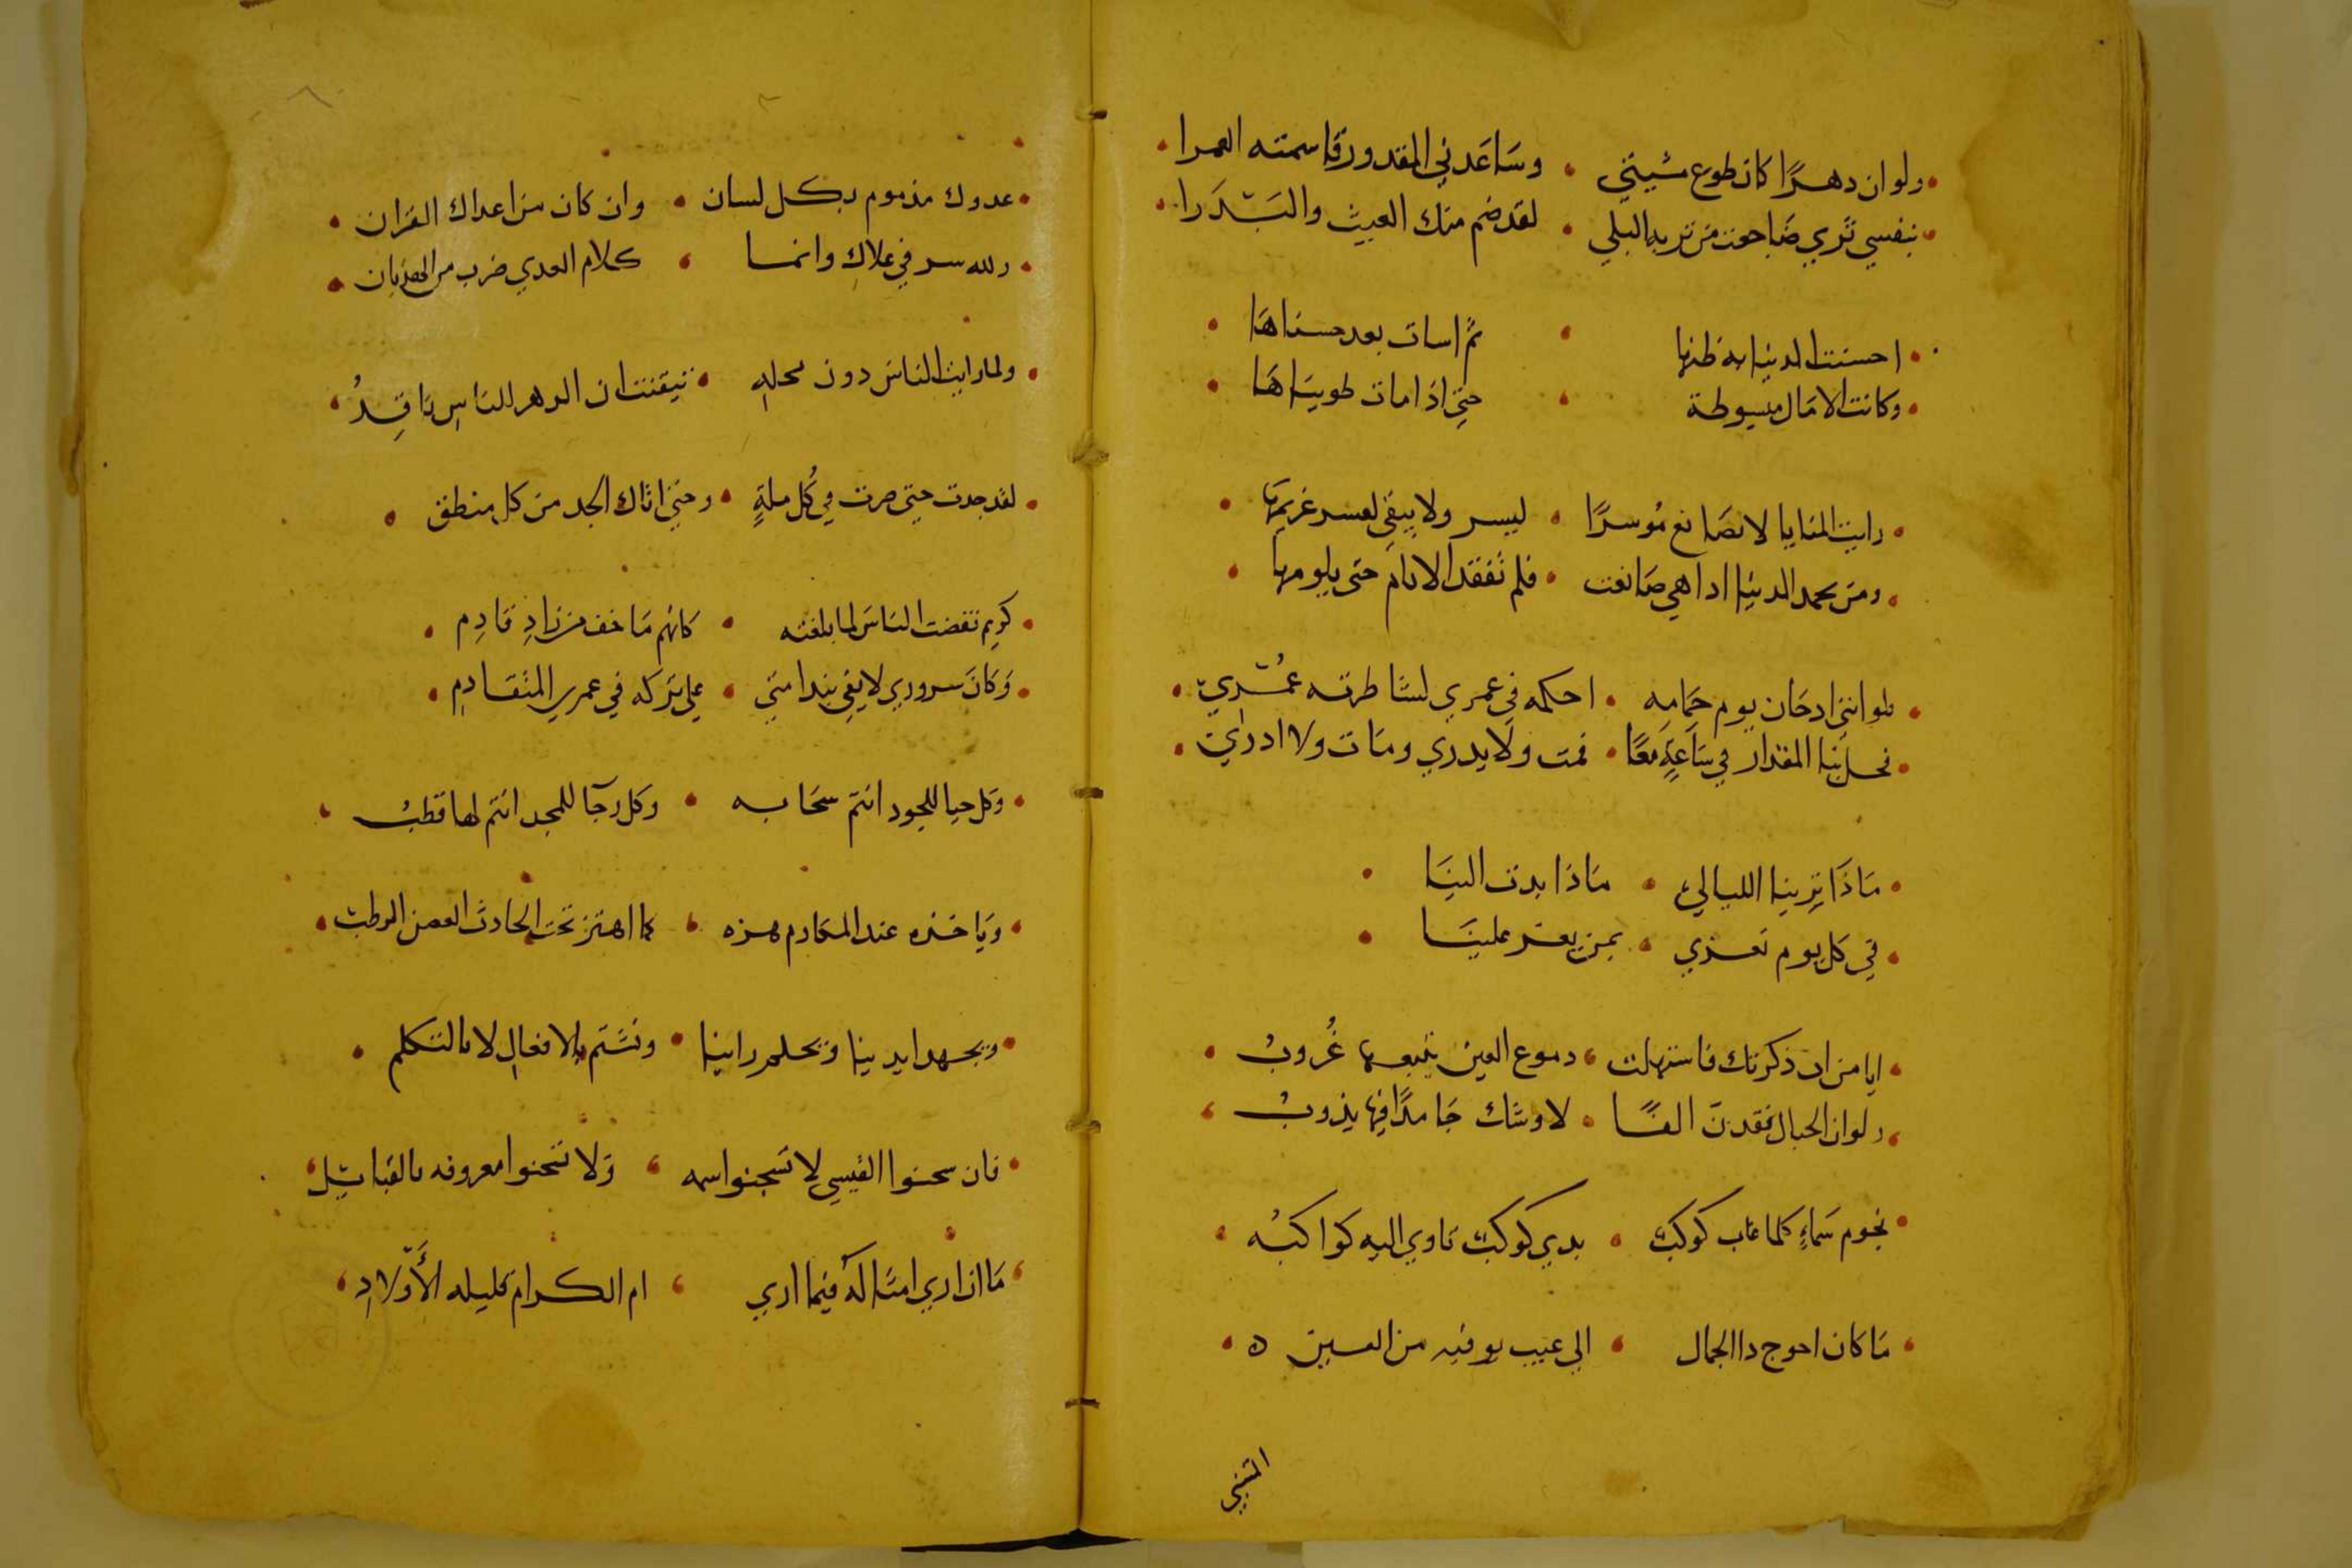 ولو ان دهرًا كان طوع مشيتي • وسَاعَدني المقدور قاسمته العمرا •
بنفسي ثري ضَاجعت من تربه البلي • لقد ضم منك الغيث والبَدَرا •
احسنت الدنيا به ظنها • ثمَّ اسات بعد حسناهَا •
وكانت الامَال مبسوطة • حتي اذا مات طويناهَا •
رايت المنايا لا تصَانع مُوسرًا • ليسر ولا يبقي لعسر غريمهَا •
ومن يحمد الدنيا اذا هي صَانعت • فلم تفقد الايام حتي يلومها •
فلو انني اذ حَان يوم حمَامه • احكمه في عمري لشَاطرته عُمْري •
فحل بنا المقدار في سَاعةٍ معًا • فمت ولَا يدري ومَات ولا ادري •
مَاذَا ترينا الليالي • مَاذا بدت الينَا •
في كل يوم نعزي • بمن يعز علينَا •
ايا من ان ذكرتك فاستهلت • دموع العين يتبعها غُروبُ •
ولو ان الجبال فقدنَ الفًا • لاوشك جَامدًا فيها يذوبُ •
نجوم سَماءٍ كلما غاب كوكبٌ • بدي كوكبٌ تاوي اليه كوَاكبُه •
مَا كان احوج ذا الجمال • الي عيب يوقيه من العين ه •
المتنبي
• عدوك مذموم بكل لسان • وان كان من اعداك القمران •
• ولله سر في علاكِ وانما • كلام العدي ضرب من الهذيان •
• ولما رايت الناسَ دون محلهِ • تيقنت ان الدهر للناسِ نَاقِدُ •
• لقد جدت حتي صرت في كُل ملةٍ • وحتي اتاك الحمد من كل منطق •
• كريم نفضت الناسَ لما بلغته • كانهم مَا خف من زادِ قادِم •
• وَكانَ سروري لا يفي بندامتي • علي تركه في عمري المتقادِم •
• وكل حيا للجود انتم سحَابه • وكل رحَا للمجد انتم لها قطبُ •
• ويَاخذه عند المكَارم هزه • كما اهتز تحت الحادث الغصن الرطبُ •
• وتجهل ايدينا ويحلم راينا • ونشتم بالافعالِ لا بالتكلم •
• فان سجنوا القيسي لا تسجنوا اسمه • وَلا تسجنوا معروفه بالقبائِل •
• مَا ان اري امثَاله فيما اري • ام الكرام قليله الأَوْلادِ •